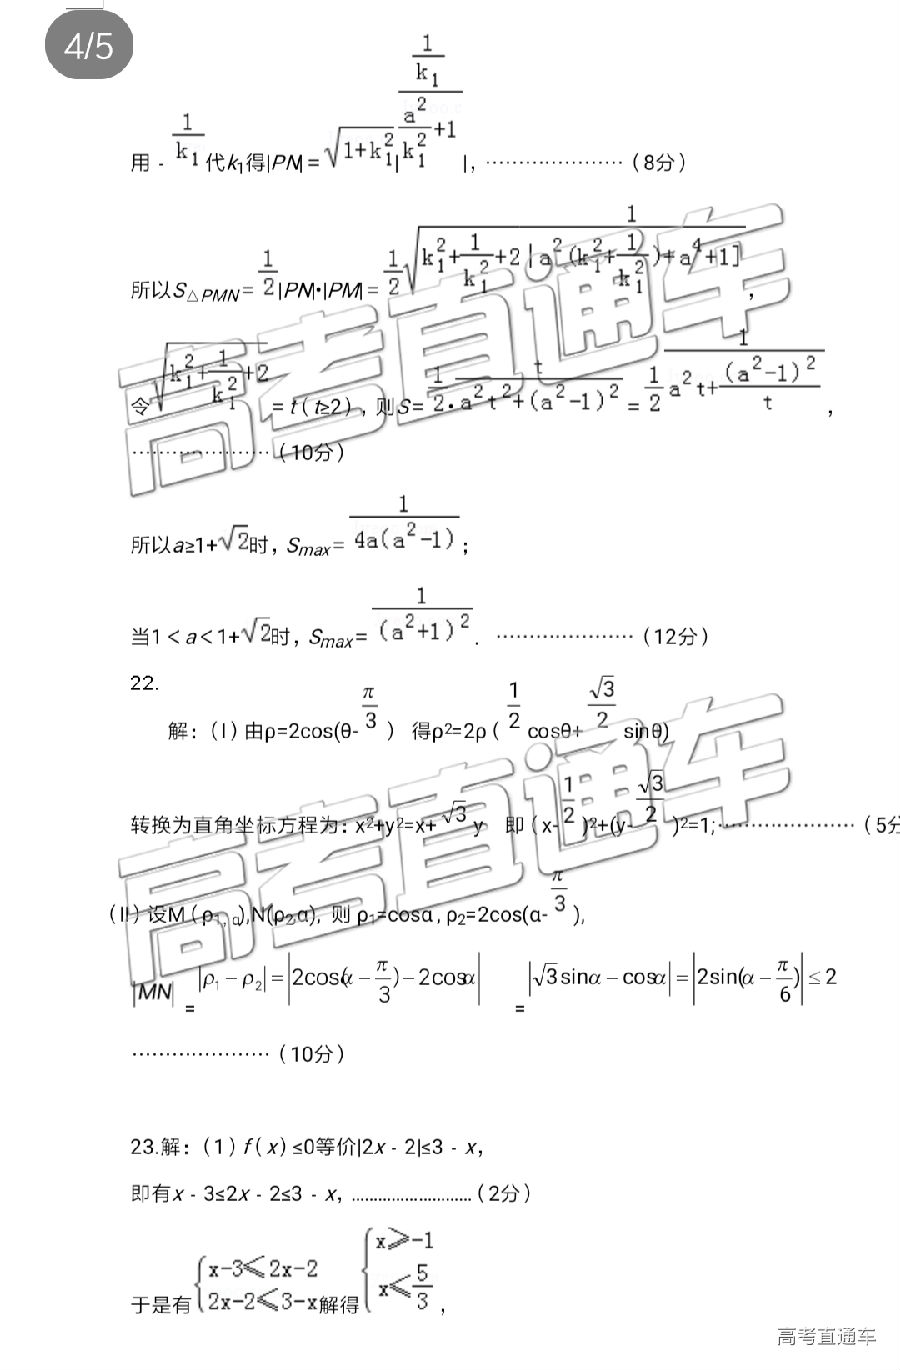 4/5
用 - 1/k₁ 代k₁得|PN| = √(1+k₁²) |(1/k₁)/(a²/k₁²+1)|, ………………… (8分)
所以S△PMN = 1/2|PN|•|PM| = 1/2 √(k₁²+1/k₁²+2) 1/[a²(k₁²+1/k₁²)+a⁴+1],
令√(k₁²+1/k₁²+2) = t (t≥2), 则S = 1/2•t/(a²t²+(a²-1)²) = 1/2 1/(a²t+(a²-1)²/t),
………………… (10分)
所以a≥1+√2时, Smax = 1/(4a(a²-1));
当1 < a < 1+√2时, Smax = 1/(a²+1)². ………………… (12分)
22.
解: (I) 由ρ=2cos(θ-π/3) 得ρ²=2ρ(1/2cosθ+√3/2 sinθ)
转换为直角坐标方程为: x²+y²=x+√3y 即 (x-1/2)²+(y-√3/2)²=1;………………… (5分
(II) 设M(ρ₁,α),N(ρ₂α), 则 ρ₁=cosα, ρ₂=2cos(α-π/3),
|MN| = |ρ₁-ρ₂| = |2cos(α-π/3)-2cosα| = |√3sinα-cosα| = |2sin(α-π/6)| ≤ 2
………………… (10分)
23.解: (1) f(x)≤0等价|2x - 2|≤3 - x,
即有x - 3≤2x - 2≤3 - x, ........................... (2分)
于是有{x-3≤2x-2 2x-2≤3-x解得{x≥-1 x≤5/3,
高考直通车
高考直通车
高考直通车